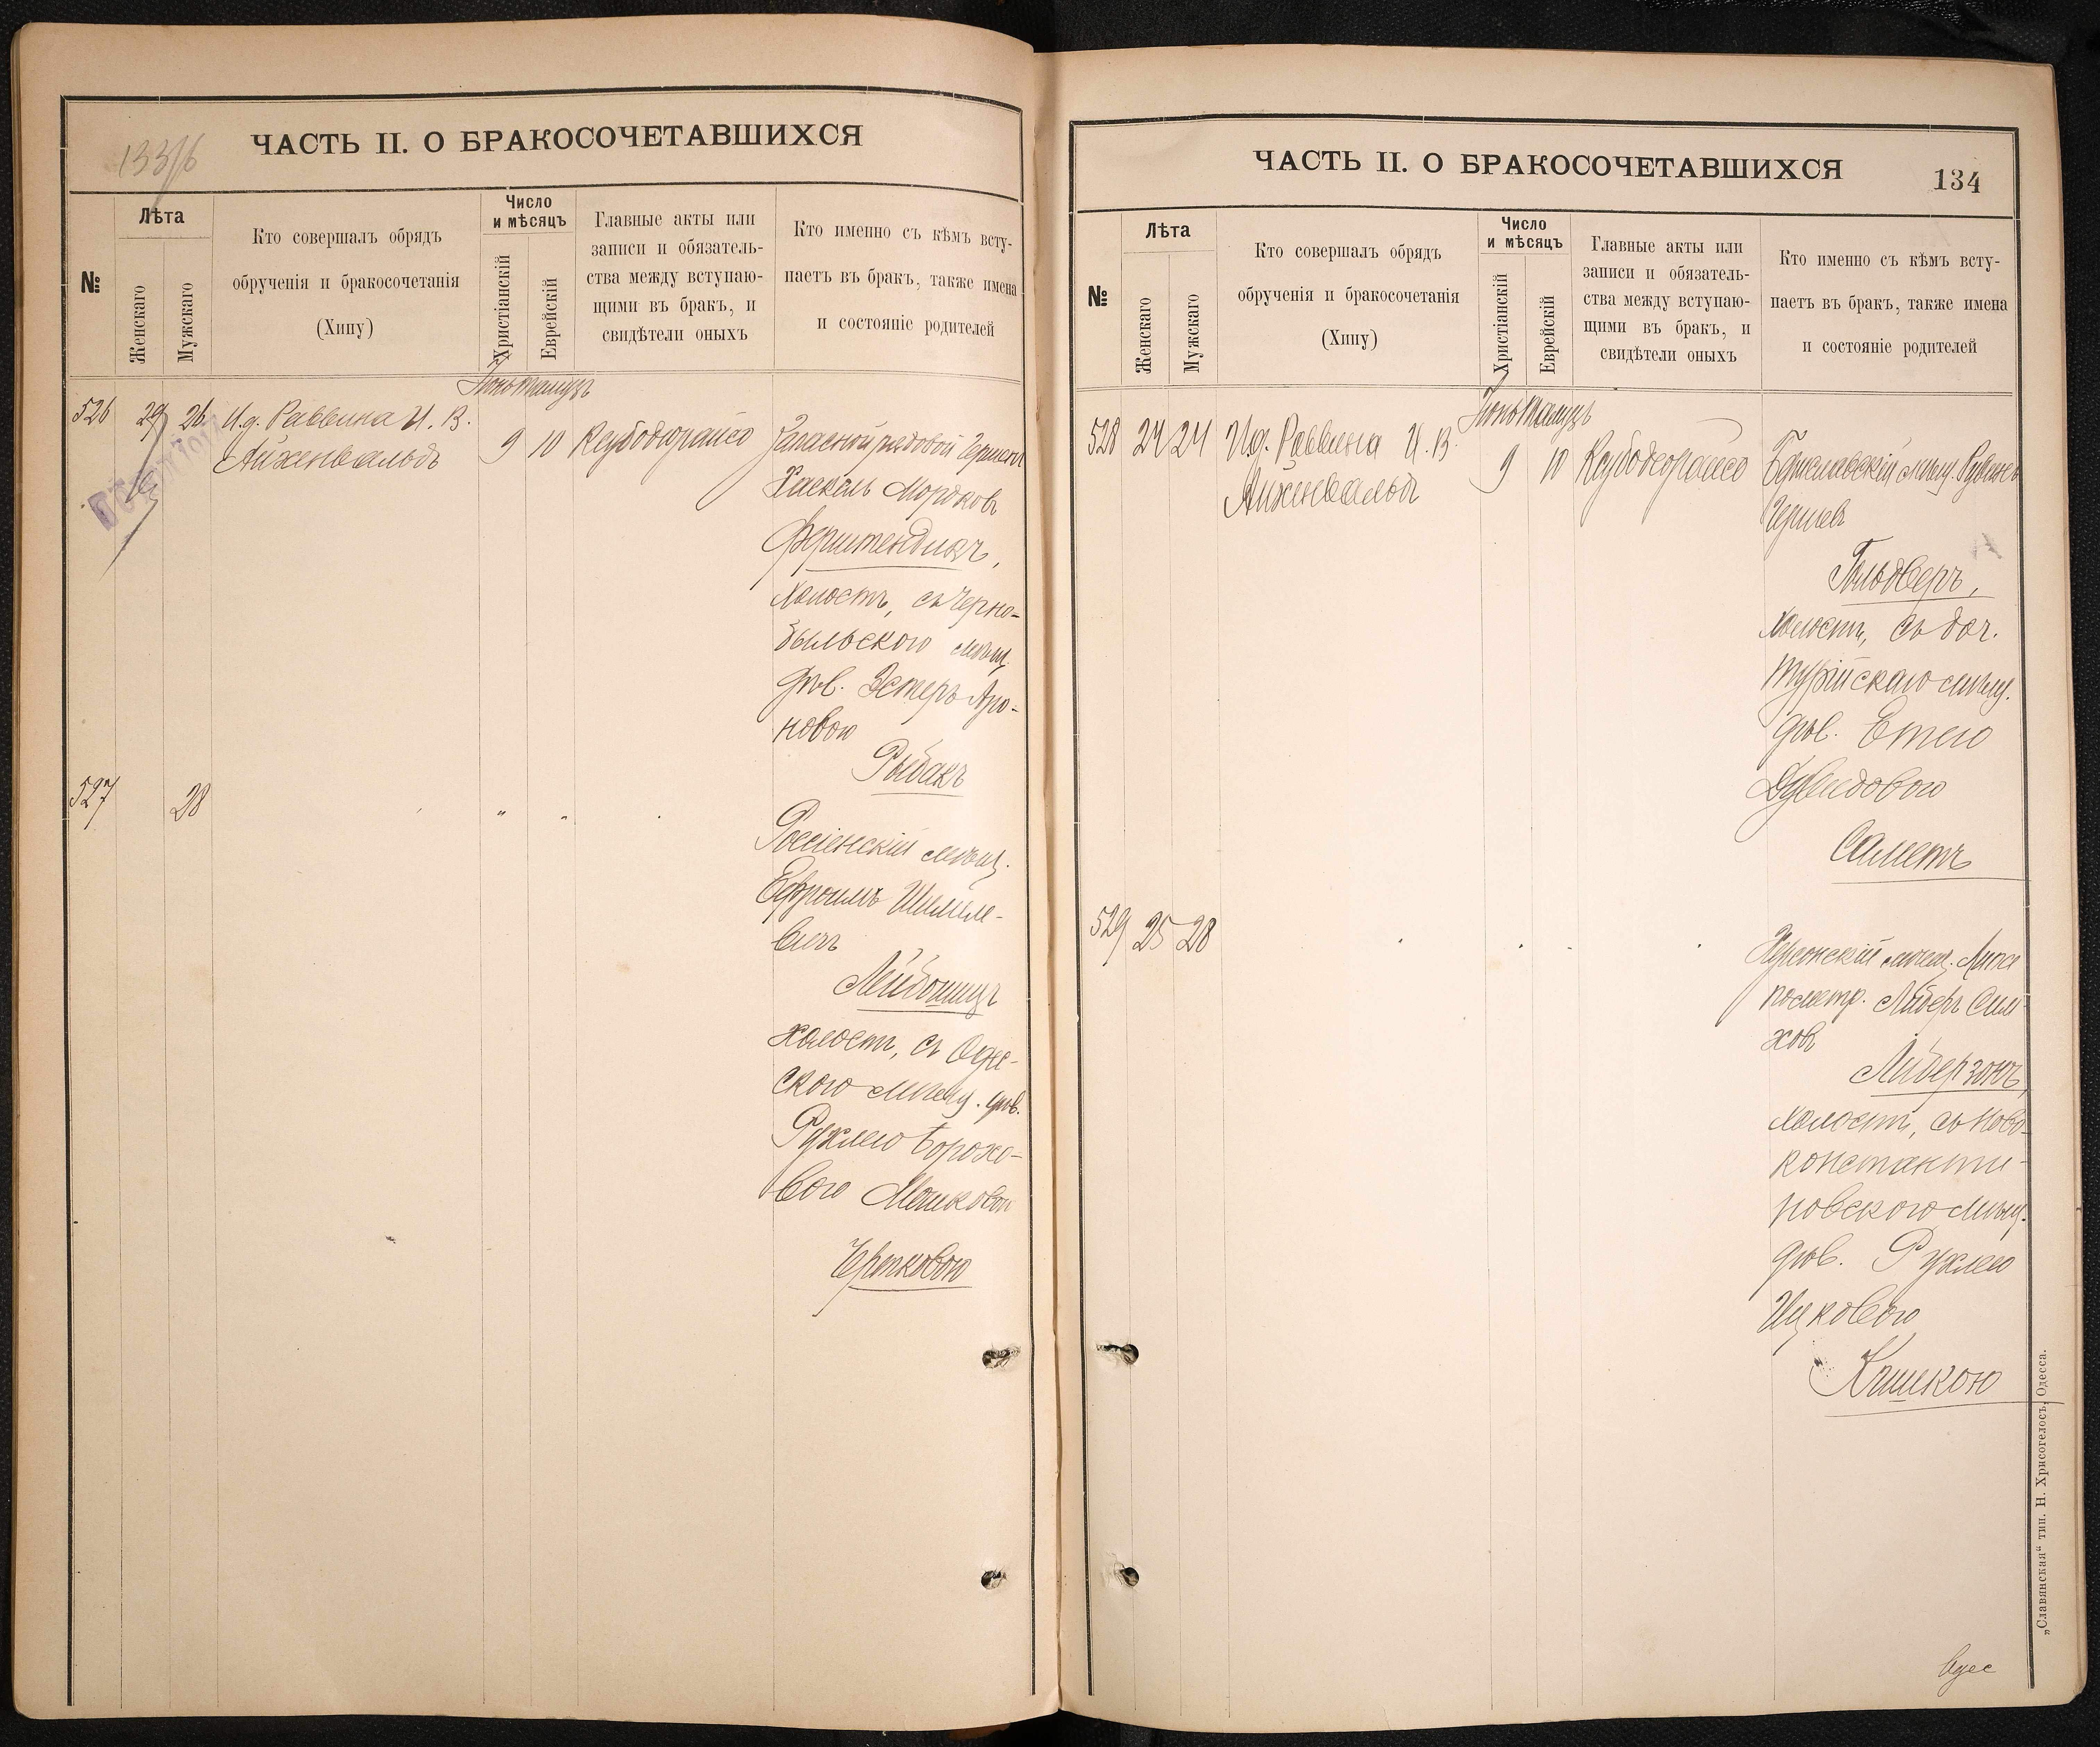 133/б
ЧАСТЬ II. О БРАКОСОЧЕТАВШИХСЯ
№
Лѣта
Женскаго
Мужскаго
Кто совершалъ обрядъ
обрученія и бракосочетанія
(Хипу)
Число
и мѣсяцъ
Христіанскій
Еврейскій
Главные акты или
записи и обязатель-
ства между вступаю-
щими въ бракъ, и
свидѣтели оныхъ
Кто именно съ кѣмъ всту-
паетъ въ бракъ, также имена
и состояніе родителей
Іюнь Тамузъ
526 29 26 И.д. Раввина И. В.
Айхенвальдъ
9 10 Ксубодюрайсо
Запасной рядовой
Хаскель Мордков
Ферштендикъ,
холостъ, съ Черно-
быльскою мѣщ.
дѣв. Эстеръ Аро-
новою
Рыбакъ
527 28 " "
Россіенскій мѣщ.
Ефроимъ Шмуле-
вичъ
Лейбошицъ
холостъ, съ Одес-
скою мѣщ. дѣв.
Рухлею Борохо-
вою Мошковой
Чертковою
ЧАСТЬ II. О БРАКОСОЧЕТАВШИХСЯ
134
№
Лѣта
Женскаго
Мужскаго
Кто совершалъ обрядъ
обрученія и бракосочетанія
(Хипу)
Число
и мѣсяцъ
Христіанскій
Еврейскій
Главные акты или
записи и обязатель-
ства между вступаю-
щими въ бракъ, и
свидѣтели оныхъ
Кто именно съ кѣмъ всту-
паетъ въ бракъ, также имена
и состояніе родителей
Іюнь Тамузъ
528 24 24 И.д. Раввина И. В.
Айхенвальдъ
9 10 Ксубодеорайсо
Бериславскій мѣщ. Рувинъ
Гершев
Гольдберъ,
холостъ, съ доч.
Турійскаго мѣщ.
дѣв. Етею
Дувидовою
Саметъ
529 25 28
Херсонскій мѣщ.
Либеръ Сим-
ховъ
Либерзонъ,
холостъ, съ Ново-
константи-
новскою мѣщ.
дѣв. Рухлею
Ицковою
Кишкою
„Славянская“ тип. Н. Хрисогелосъ, Одесса.